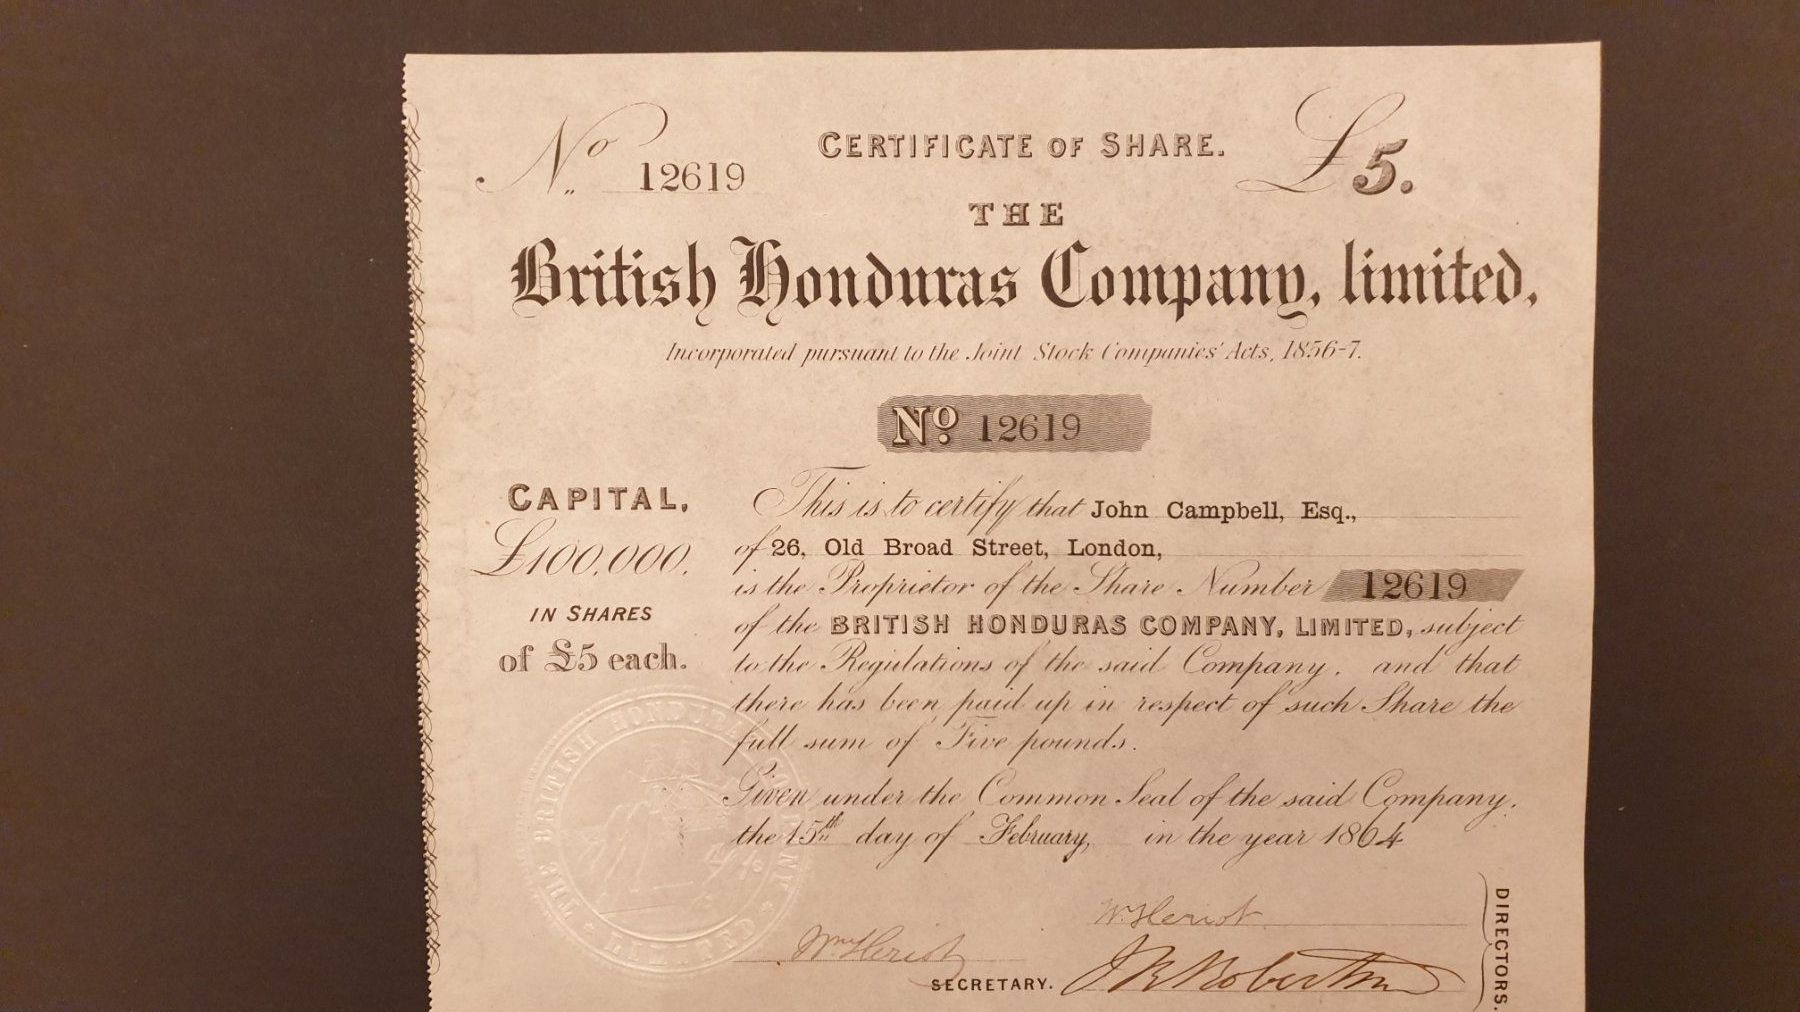 No 12619
CERTIFICATE OF SHARE.
£5.
THE
British Honduras Company, limited,
Incorporated pursuant to the Joint Stock Companies' Acts, 1856-7.
No. 12619
CAPITAL,
£100,000,
IN SHARES
of £5 each.
This is to certify that John Campbell, Esq.,
of 26, Old Broad Street, London,
is the Proprietor of the Share Number 12619
of the BRITISH HONDURAS COMPANY, LIMITED, subject
to the Regulations of the said Company, and that
there has been paid up in respect of such Share the
full sum of Five pounds.
Given under the Common Seal of the said Company,
the 15th day of February, in the year 1864
THE BRITISH HONDURAS COMPANY LIMITED
Wm Heriot
SECRETARY.
Wm Heriot
J R Robertson
DIRECTORS.